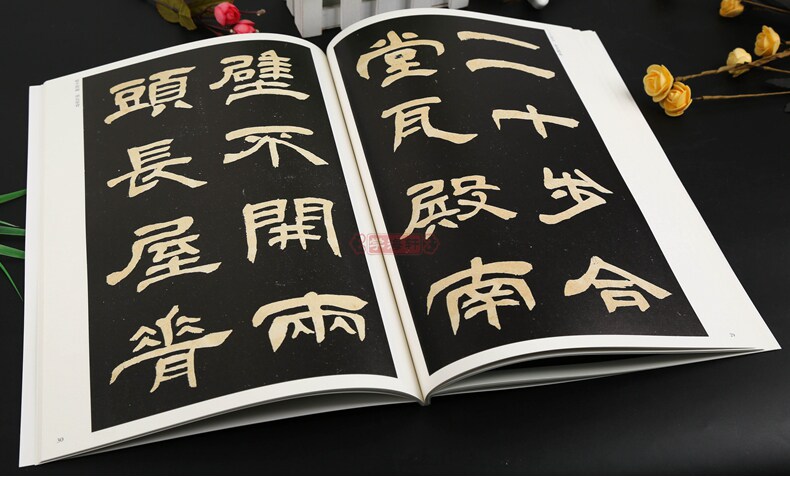 二十步合
堂瓦殿南
壁不開兩
頭長屋脊
30